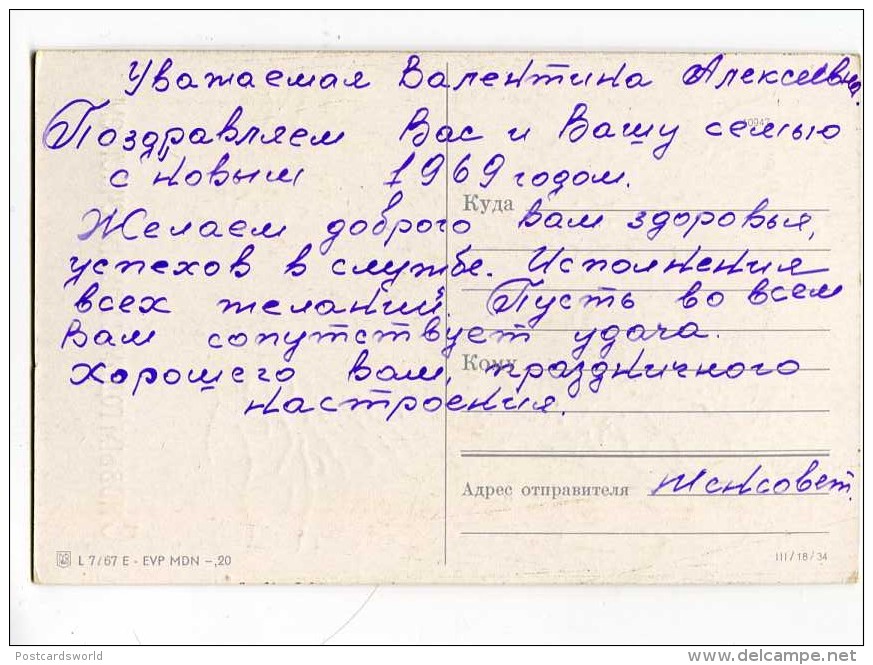 Уважаемая Валентина Алексеевна.
Поздравляем Вас и Вашу семью
с новым 1969 годом.
Желаем доброго Вам здоровья,
успехов в службе. Исполнения
всех желаний. Пусть во всем
Вам сопутствует удача.
Хорошего вам, праздничного
настроения.
Куда
Кому
Адрес отправителя Женсовет.
L 7/67 E - EVP MDN -,20
III/18/34
Postcardsworld
www.delcampe.net